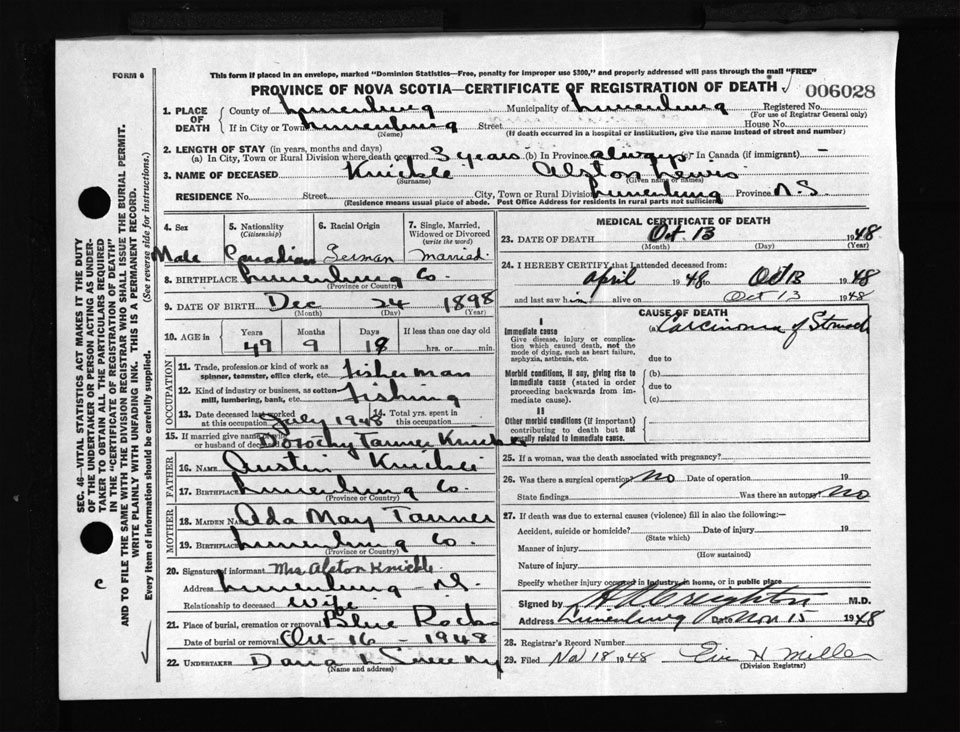 FORM 6
This form if placed in an envelope, marked "Dominion Statistics—Free, penalty for improper use $300," and properly addressed will pass through the mail "FREE"
PROVINCE OF NOVA SCOTIA—CERTIFICATE OF REGISTRATION OF DEATH 006028
1. PLACE OF DEATH
County of Lunenburg Municipality of Lunenburg Registered No.
(For use of Registrar General only)
If in City or Town Lunenburg Street House No.
(Name) (If death occurred in a hospital or institution, give the name instead of street and number)
2. LENGTH OF STAY (in years, months and days)
(a) In City, Town or Rural Division where death occurred 3 years (b) In Province always (c) In Canada (if immigrant) —
3. NAME OF DECEASED Knickle Alston Lewis
(Surname) (Given name or names)
RESIDENCE No. Street City, Town or Rural Division Lunenburg Province N.S.
(Residence means usual place of abode. Post Office Address for residents in rural parts not sufficient)
4. Sex 5. Nationality (Citizenship) 6. Racial Origin 7. Single, Married, Widowed or Divorced (write the word)
Male Canadian German Married
8. BIRTHPLACE Lunenburg Co.
(Province or Country)
9. DATE OF BIRTH Dec 24 1898
(Month) (Day) (Year)
10. AGE in Years Months Days If less than one day old
49 9 18 hrs. or min.
OCCUPATION
11. Trade, profession or kind of work as spinner, teamster, office clerk, etc. Fisherman
12. Kind of industry or business, as cotton mill, lumbering, bank, etc. Fishing
13. Date deceased last worked at this occupation July 1948 14. Total yrs. spent in this occupation
15. If married give name of wife or husband of deceased Dorothy Tanner Knickle
FATHER
16. NAME Austin Knickle
17. BIRTHPLACE Lunenburg Co.
(Province or Country)
MOTHER
18. MAIDEN NAME Ada May Tanner
19. BIRTHPLACE Lunenburg Co.
(Province or Country)
20. Signature of informant Mrs Alston Knickle
Address Lunenburg N.S.
Relationship to deceased Wife
21. Place of burial, cremation or removal Blue Rocks
Date of burial or removal Oct - 16 - 1948
22. UNDERTAKER Dana Sweeny
(Name and address)
MEDICAL CERTIFICATE OF DEATH
23. DATE OF DEATH Oct. 13 1948
(Month) (Day) (Year)
24. I HEREBY CERTIFY that I attended deceased from:
April 1948 to Oct 13 1948
and last saw him alive on Oct 13 1948
CAUSE OF DEATH
I
Immediate cause (a) Carcinoma of Stomach
Give disease, injury or complication which caused death, not the mode of dying, such as heart failure, asphyxia, asthenia, etc.
due to
Morbid conditions, if any, giving rise to immediate cause (stated in order proceeding backwards from immediate cause)
(b)
due to
(c)
II
Other morbid conditions (if important) contributing to death but not causally related to immediate cause.
25. If a woman, was the death associated with pregnancy?
26. Was there a surgical operation? No Date of operation 19
State findings Was there an autopsy? No
27. If death was due to external causes (violence) fill in also the following:—
Accident, suicide or homicide? Date of injury 19
(State which)
Manner of injury
(How sustained)
Nature of injury
Specify whether injury occurred in industry, in home, or in public place
Signed by Creighton M.D.
Address Lunenburg Date Nov 15 1948
28. Registrar's Record Number
29. Filed Nov 18 1948 H Miller
(Division Registrar)
SEC. 46—VITAL STATISTICS ACT MAKES IT THE DUTY
OF THE UNDERTAKER OR PERSON ACTING AS UNDER-
TAKER TO OBTAIN ALL THE PARTICULARS REQUIRED
IN THE "CERTIFICATE OF REGISTRATION OF DEATH"
AND TO FILE THE SAME WITH THE DIVISION REGISTRAR WHO SHALL ISSUE THE BURIAL PERMIT.
WRITE PLAINLY WITH UNFADING INK. THIS IS A PERMANENT RECORD.
Every item of information should be carefully supplied. (See reverse side for instructions.)